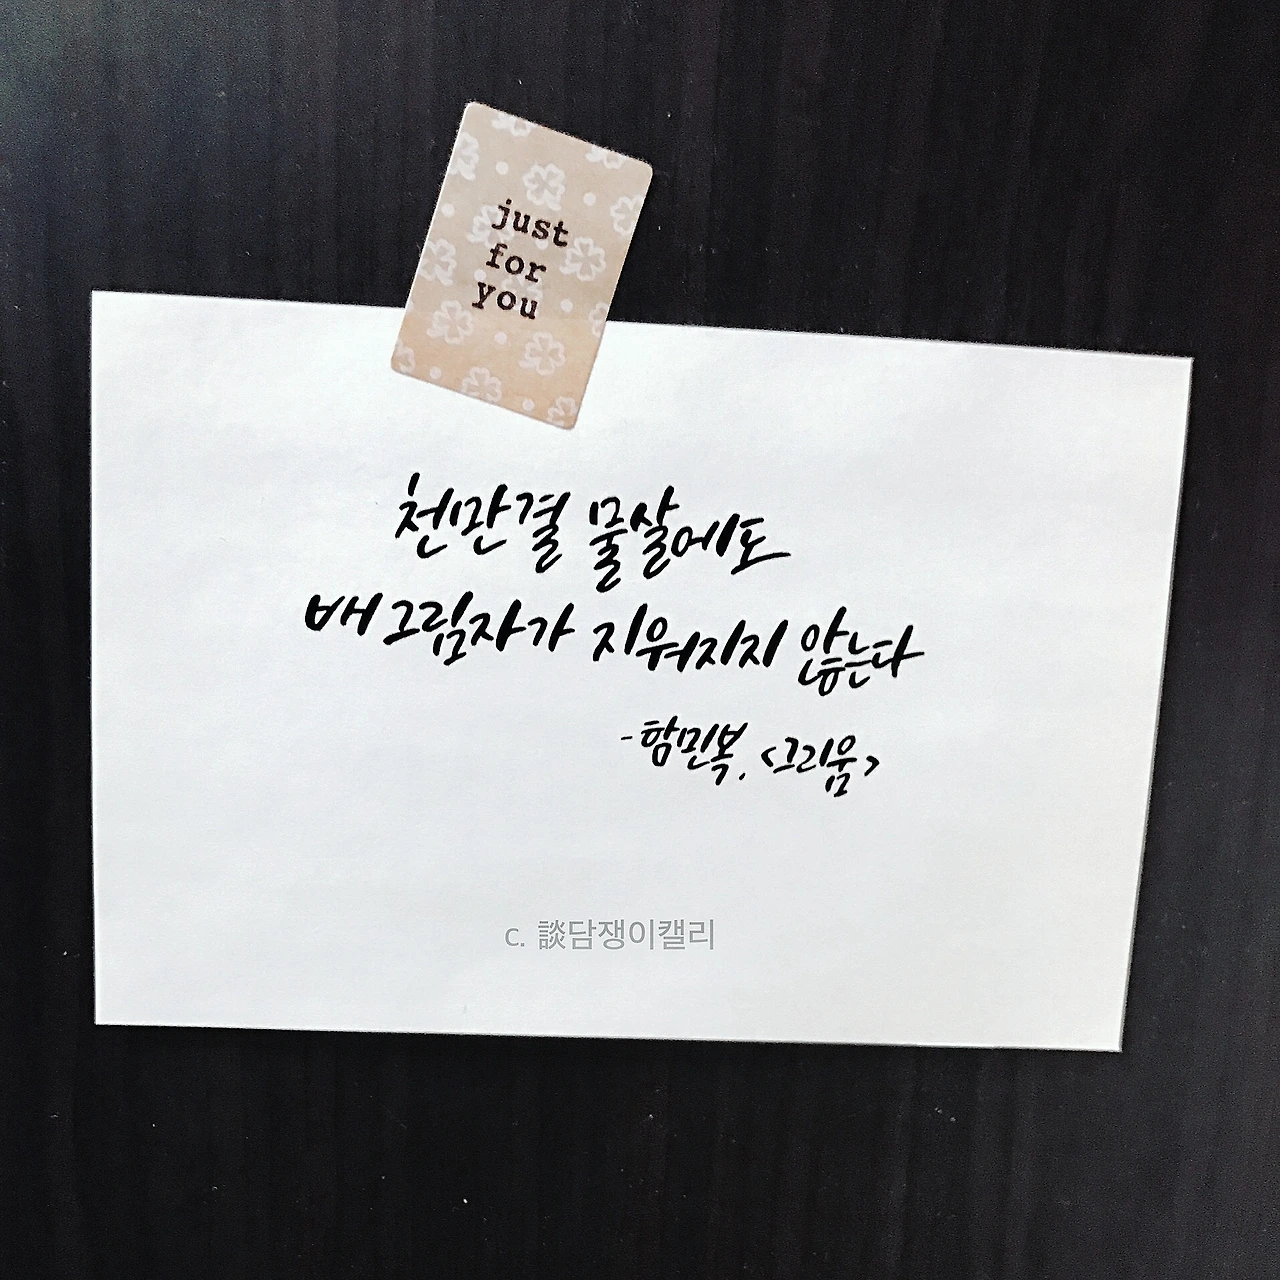 just
for
you
천만결 물살에도
배 그림자가 지워지지 않는다
-함민복, <그리움>
c. 談담쟁이캘리